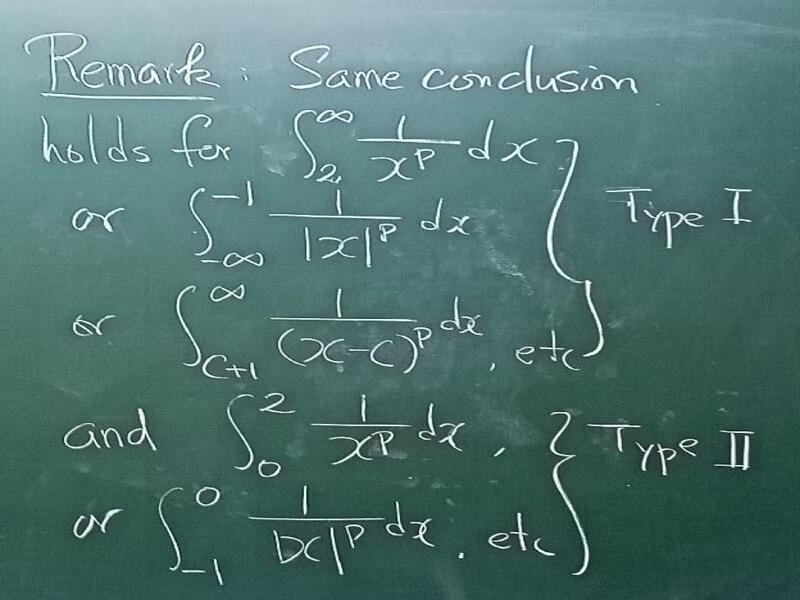 Remark: Same conclusion
holds for ∫_2^∞ 1/x^p dx
or ∫_{-∞}^{-1} 1/|x|^p dx
Type I
or ∫_{C+1}^∞ 1/(x-C)^p dx, etc
and ∫_0^2 1/x^p dx,
Type II
or ∫_{-1}^0 1/|x|^p dx. etc